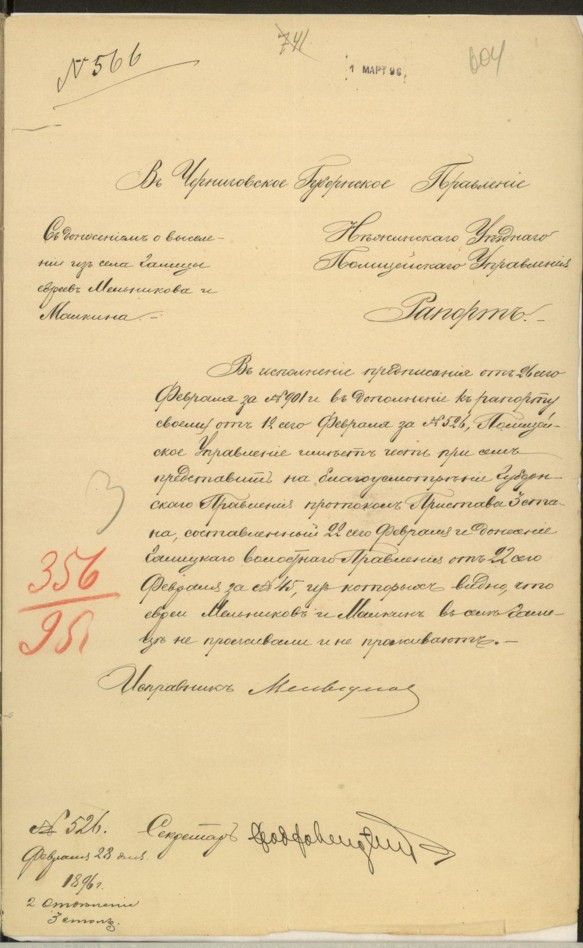 N 566
741
1 МАРТ 96
Въ Черниговское Губернское Правленіе
Съ донесеніемъ о выселе-
ніи изъ села Галицы
евреевъ Мельникова и
Малкина.-
Нѣжинскаго Уѣзднаго
Полицейскаго Управленія
Рапортъ.-
Въ исполненіе предписанія отъ 26 сего
Февраля за № 901 и въ дополненіе къ рапорту
своему отъ 12 сего Февраля за № 526, Полицей-
ское Управленіе имѣетъ честь при семъ
представить на благоусмотрѣніе Губерн-
скаго Правленія протоколъ Пристава 3 ста-
на, составленный 22 сего Февраля и донесеніе
Галицкаго волостнаго Правленія отъ 22 сего
Февраля за № 45, изъ которыхъ видно, что
евреи Мельниковъ и Малкинъ въ селѣ Гали-
цѣ не проживали и не проживаютъ.-
3
356
95
Исправникъ
№ 526.
Секретарь
Февраля 28 дня
1896 г.
2 Отдѣленіе
3 столъ.